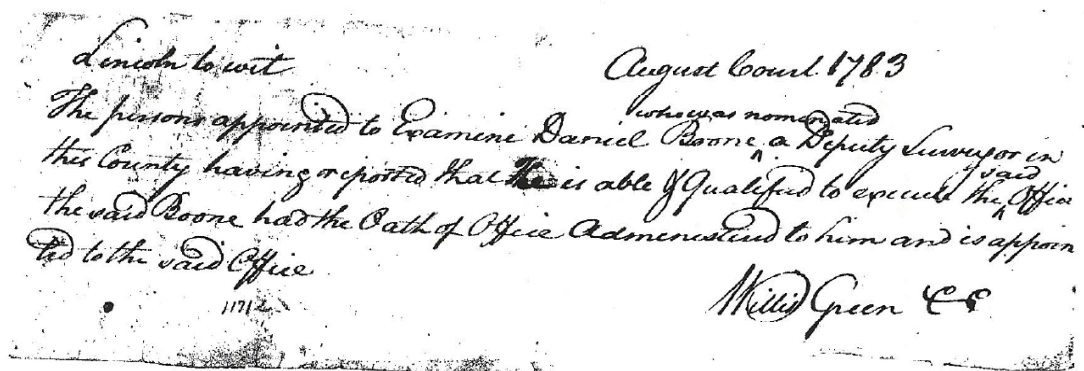 Lincoln to wit August Court 1783
The persons appointed to Examine Daniel Boone who was nomenated a Deputy Surveyor in
this County having reported that He is able & Qualified to execute the said Office
the said Boone had the Oath of Office Administered to him and is appoin
ted to the said Office
Willis Green CC